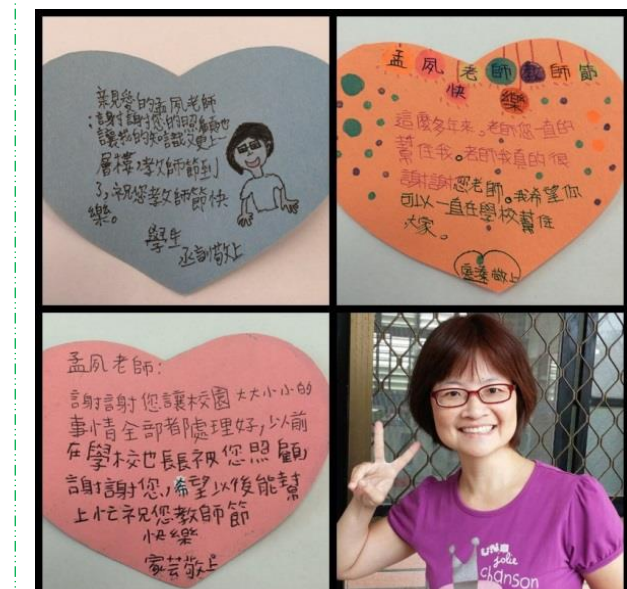 親愛的孟夙老師
:謝謝您的照顧也
讓我的知識又更上一
層樓,教師節到
了,祝您教師節快
樂。
學生
丞訓敬上
孟夙老師教師節
快樂
這麼多年來,老師您一直的
幫住我。老師我真的很
謝謝您老師。我希望你
可以一直在學校幫住
大家。
敬上
孟夙老師:
謝謝您讓校園大大小小的
事情全部都處理好,以前
在學校也長長被您照顧
謝謝您,希望以後能幫
上忙祝您教師節
快樂
家芸敬上
UNE
jolie
chanson